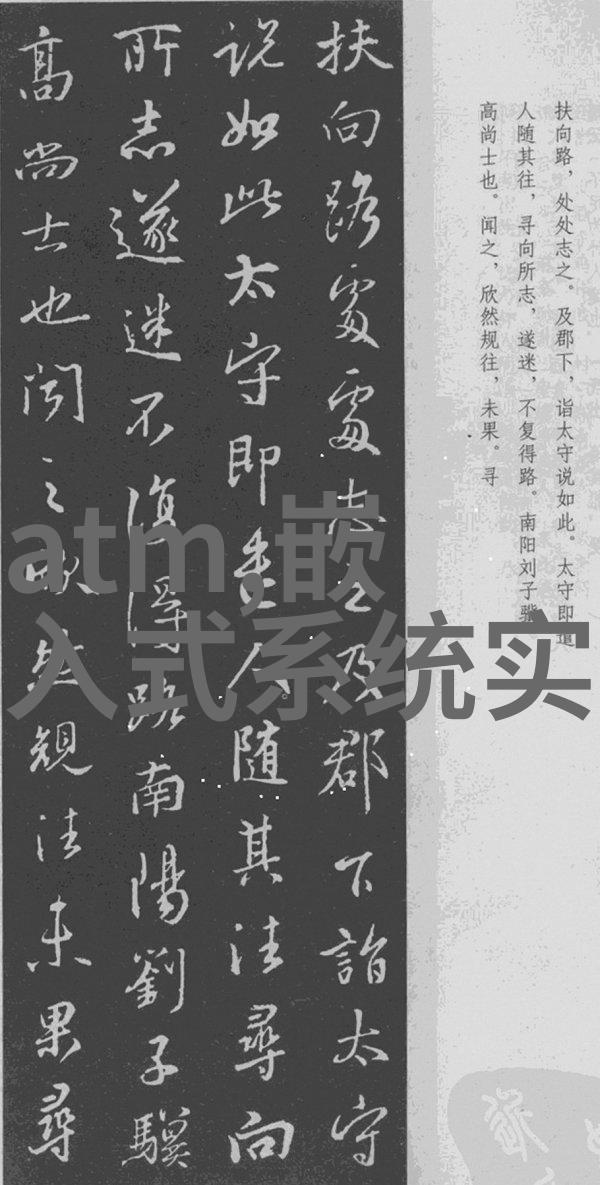 扶向路，处处志之。及郡下，诣太守说如此。太守即遣
人随其往，寻向所志，遂迷，不复得路。南阳刘子骥
高尚士也。闻之，欣然规往，未果。寻
扶向路處處志之及郡下詣太守
説如此太守即遣人随其往尋向
所志遂迷不復得路南陽劉子驥
高尚士也聞之欣然規往未果尋
atm,嵌
入式系统实